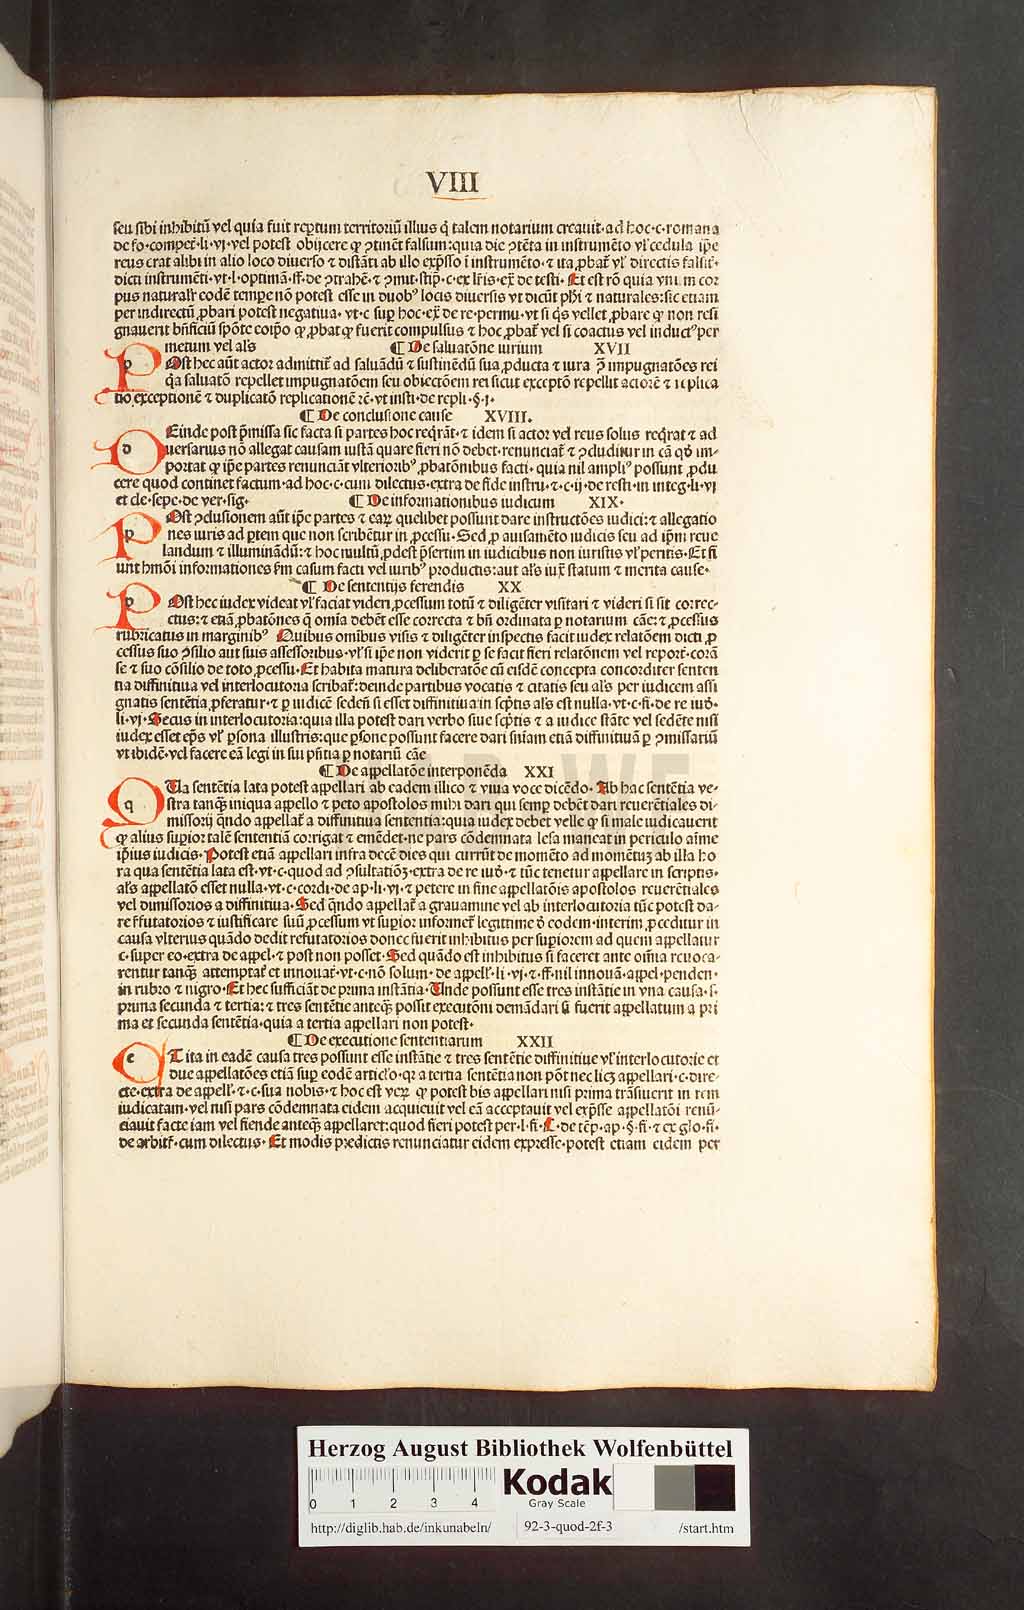 VIII
seu sibi inhibitū vel quia fuit reꝑtum territoriū illius q̇ talem notarium creauit·ad hoc·c·romana
de fo·compet̄·li·vj·vel potest obijcere ꝙ ꝯtinet falsum:quia die ꝯtēta in instrumēto vl̓ cedula ip̄e
reus erat alibi in alio loco diuerso ⁊ distāti ab illo exp̄sso ī instrumēto·⁊ ita ꝓbat̄ vl̓ directis falsit̄·
dicti instrumēti·vt·l·optimā·ff·de ꝯtrahē·⁊ ꝯmit·stip̄·c·ex lr̄is·ex̄ de testi· Et est rō quia vnum cor
pus naturalr̄ eodē tempe nō potest esse in duobꝰ locis diuersis vt dicūt phi ⁊ naturales:sic etiam
per indirectū ꝓbari potest negatiua· vt·c sup̄ hoc·ex̄ de re·permu·vt si q̄s vellet ꝓbare ꝙ non resi
gnauerit bn̄ficiū spōte corꝑo ꝙ ꝓbat ꝙ fuerit compulsus ⁊ hoc ꝓbat̄ vel si coactus vel inductꝰ per
metum vel al̓s ¶ De saluatōne iurium XVII
POst hec aūt actor admittit̄ ad saluādū ⁊ sustinēdū sua ꝓducta ⁊ iura ꝯ̄ impugnatōes rei
q̄a saluatō repellet impugnatōem seu obiectōem rei sicut exceptō repellit actorē ⁊ replica
tio exceptionē ⁊ duplicatō replicationē rē·vt insti·de repli·§·j·
¶ De conclusione cause XVIII.
DEinde post p̄missa sic facta si partes hoc reqrāt·⁊ idem si actor vel reus solus reqrat ⁊ ad
uersarius nō allegat causam iustā quare fieri nō debet·renunciat̄ ⁊ ꝯcluditur in cā qd̓ im-
portat ꝙ ip̄e partes renunciāt vlterioribꝰ ꝓbatōnibus facti·quia nil ampliꝰ possunt ꝓdu
cere quod continet factum·ad hoc·c·cum dilectus·extra de fide instru·⁊·c·ij·de resti·in integ·li·vj
et cle·sepe·de ver·sig· ¶ De informationibus iudicum XIX·
POst ꝯclusionem aūt ip̄e partes ⁊ eaꝝ quelibet possunt dare instructōes iudici:⁊ allegatio
nes iuris ad ꝑtem que non scribētur in ꝓcessu·Sed ꝓ auisamēto iudicis seu ad ip̄m reue
landum ⁊ illuminādū:⁊ hoc multū ꝓdest p̄sertim in iudicibus non iuristis vl̓ peritis·Et fi
unt hmōi informationes ẜm casum facti vel iuribꝰ productis:aut al̓s iux̄ statum ⁊ merita cause·
¶ De sententijs ferendis XX
POst hec iudex videat vl̓ faciat videri ꝓcessum totū ⁊ diligēter visitari ⁊ videri si sit correc-
ctus:⁊ etiā ꝓbatōnes q̄ om̄ia debēt esse correcta ⁊ bn̄ ordinata ꝑ notarium cāe:⁊ ꝓcessus
rubricatus in marginibꝰ Quibus om̄ibus visis ⁊ diligēter inspectis facit iudex relatōem dicti ꝓ
cessus suo ꝯsilio aut suis assessoribus·vl̓ si ip̄e non viderit ꝑ se facit fieri relatōnem vel report̄·corā
se ⁊ suo cōsilio de toto ꝓcessu·Et habita matura deliberatōe cū eisdē concepta concorditer senten
tia diffinitiua vel interlocutoria scribat̄:deinde partibus vocatis ⁊ citatis seu al̓s per iudicem assi
gnatis sentētia ꝓferatur·⁊ ꝑ iudicē sedeñ si esset diffinitiua in sc̄ptis al̓s est nulla·vt·c·fi·de re iud̓·
li·vj·Secus in interlocutoria:quia illa potest dari verbo siue sc̄ptis ⁊ a iudice stāte vel sedēte nisi
iudex esset ep̄s vl̓ ꝑsona illustris:que ꝑsone possunt facere dari sniam etiā diffinitiuā ꝑ ꝯmissariū
vt ibidē·vel facere eā legi in sui p̄ntia ꝑ notariū cāe
¶ De appellatōe interponēda XXI
QUa sentētia lata potest appellari ab eadem illico ⁊ viua voce dicēdo·Ab hac sentētia ve-
stra tanq̄ iniqua appello ⁊ peto apostolos mihi dari qui semꝑ debēt dari reuerētiales di-
missorij qn̄do appellat̄ a diffinitiua sententia·quia iudex debet velle ꝙ si male iudicauerit
ꝙ alius suꝑior talē sententiā corrigat ⁊ emēdet·ne pars cōdemnata lesa maneat in periculo aīme
ip̄ius iudicis·Potest etiā appellari infra decē dies qui currūt de momēto ad momētuꝫ ab illa ho
ra qua sentētia lata est·vt·c·quod ad ꝯsultatiōꝫ·extra de re iud̓·⁊ tūc tenetur appellare in scriptis·
al̓s appellatō esset nulla·vt·c·cordi·de ap·li·vj·⁊ petere in fine appellatōis apostolos reuerētiales
vel dimissorios a diffinitiua·Sed qn̄do appellat̄ a grauamine vel ab interlocutoria tūc potest da-
re r̄futatorios ⁊ iustificare suū ꝓcessum vt suꝑior informet̄ legittime ⁊ eodem·interim ꝓceditur in
causa vlterius quādo dedit refutatorios donec fuerit inhibitus per suꝑiorem ad quem appellatur
c·super eo·extra de appel·⁊ post non posset·Sed quādo est inhibitus si faceret ante om̄ia reuoca-
rentur tanq̄ attemptat̄ et innouat̄·vt·c·nō solum·de appell̄·li·vj·⁊·ff·nil innouā·appel·penden·
in rubro ⁊ nigro·Et hec sufficiāt de prima instātia·Unde possunt esse tres instātie in vna causa·s·
prima secunda ⁊ tertia:⁊ tres sentētie anteq̄ possit executōni demādari si fuerit appellatum a pri
ma et secunda sentētia·quia a tertia appellari non potest·
¶ De executione sententiarum XXII
ETita in eadē causa tres possunt esse instātie ⁊ tres sentētie diffinitiue vl̓ interlocutorie et
due appellatōes etiā suꝑ eodē articl̓o·qr a tertia sentētia non pōt nec licꝫ appellari·c·dire-
cte·extra de appell̄·⁊·c·sua nobis·⁊ hoc est veꝝ ꝙ potest bis appellari nisi prima trāsiuerit in rem
iudicatam·vel nisi pars cōdemnata eidem acquieuit vel eā acceptauit vel exp̄sse appellatōi renū-
ciauit facte iam vel fiende anteq̄ appellaret:quod fieri potest per·l·fi·C·de tēp·ap·§·fi·⁊ ex glo·fi·
de arbitr̄·cum dilectus· Et modis predictis renunciatur eidem expresse·potest etiam eidem per
HAB WF
Herzog August Bibliothek Wolfenbüttel
0 1 2 3 4
Kodak
Gray Scale
http://diglib.hab.de/inkunabeln/ 92-3-quod-2f-3 /start.htm